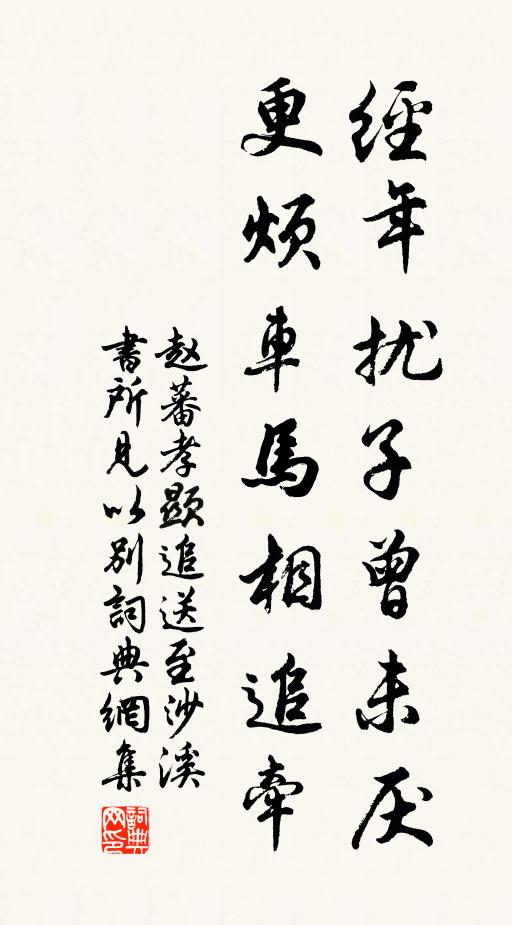 經年扰子曾未厌
更煩車馬相追牽
赵蕃孝顯追送至沙溪
書所見以别詞典網集
詞典网印